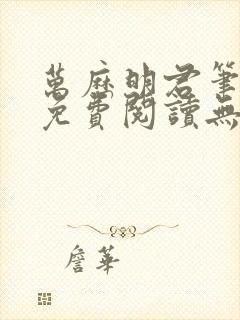 萬麻明君筆
免費閱讀無
詹華